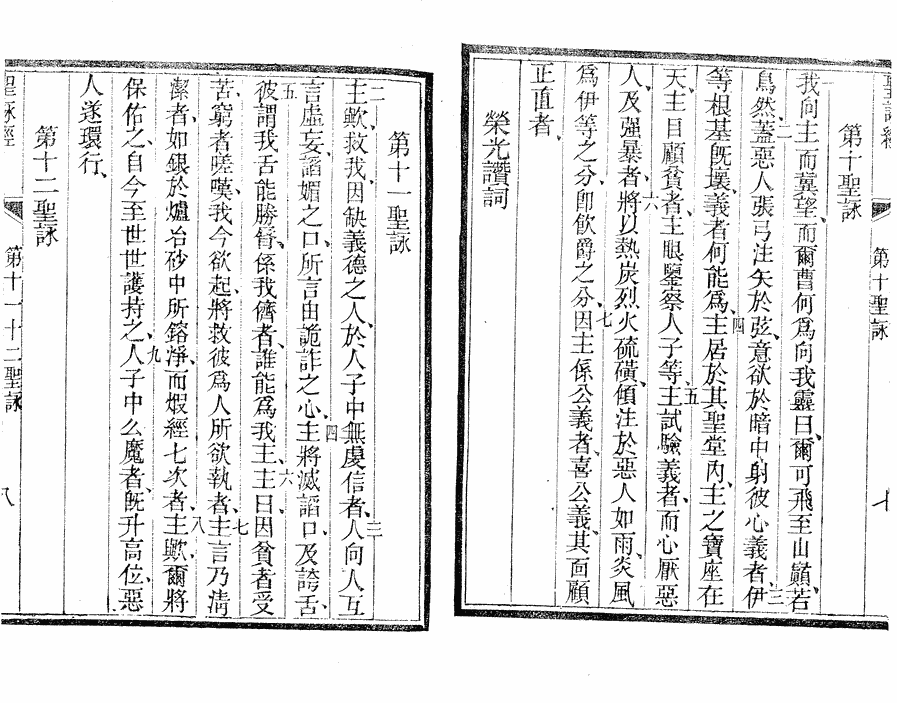 聖詠經
第十聖詠
七
第十聖詠
一
我向主而冀望、而爾曹何爲向我靈曰、爾可飛至山巓、若
鳥然、二蓋惡人張弓注矢於弦、意欲於暗中射彼心義者、三伊
等根基既壞、義者何能爲、四主居於其聖堂內、主之寶座在
天、主目顧貧者、主眼鑒察人子等、五主試驗義者、而心厭惡
人、及强暴者、六將以熱炭烈火硫磺、傾注於惡人如雨、炎風
爲伊等之分、卽飲爵之分、七因主係公義者、喜公義、其面顧
正直者、
榮光讚詞
第十一聖詠
二
主歟、救我、因缺義德之人、於人子中無虔信者、三人向人互
言虛妄、謟媚之口、所言由詭詐之心、四主將滅謟口、及誇舌、
五
彼謂我舌能勝脣、係我儕者、誰能爲我主、六主曰、因貧者受
苦、窮者嗟嘆、我今欲起、將救彼爲人所欲執者、七主言乃淸
潔者、如銀於爐冶砂中所鎔淨、而煆經七次者、八主歟、爾將
保佑之、自今至世世護持之、九人子中么魔者、既升高位、惡
人遂環行、
第十二聖詠
聖詠經
第十一 十二聖詠
八